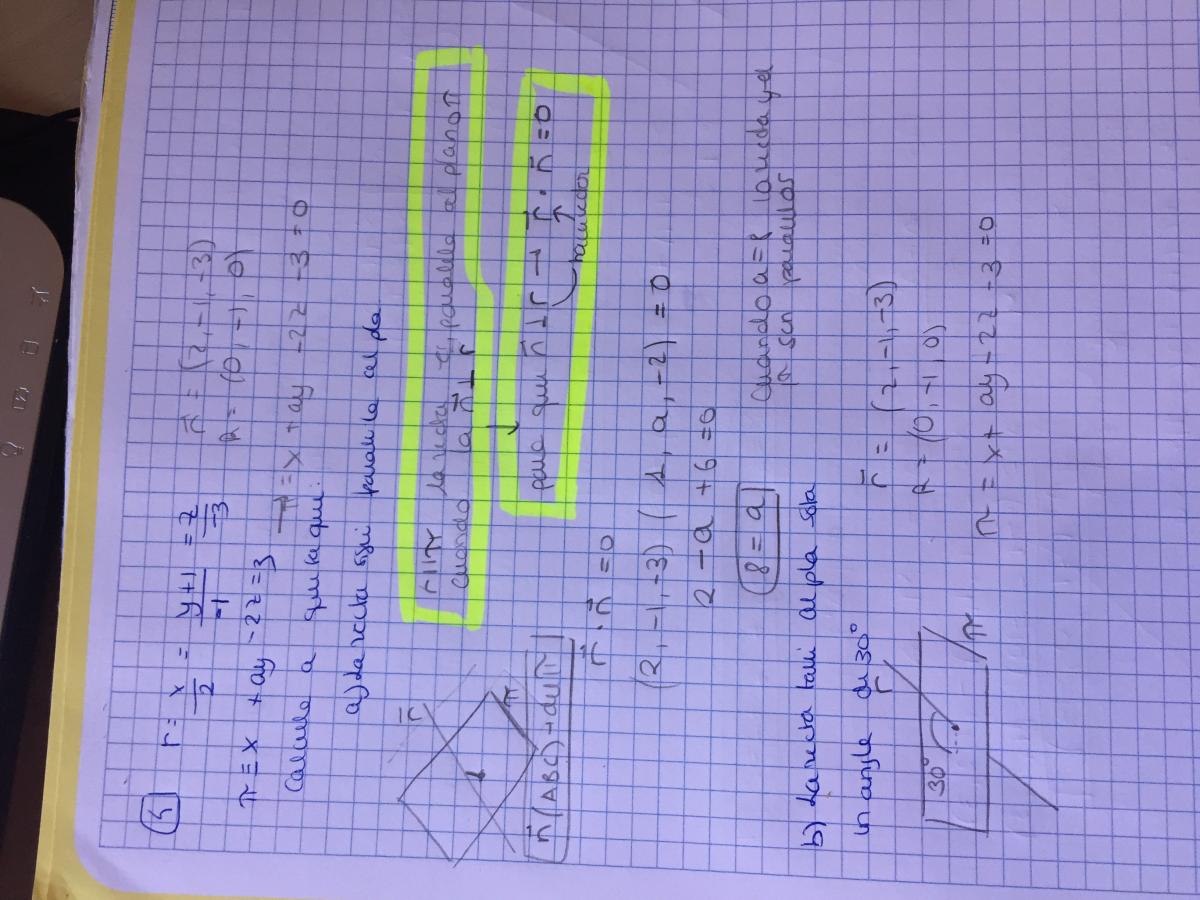 5
r = x/2 = y+1/-1 = z/-3
r⃗ = (2, -1, -3)
R = (0, -1, 0)
π ≡ x + ay - 2z = 3
π = x + ay - 2z - 3 = 0
Calcula a que
a) La recta sigui paral·la al pla
r⃗
π
r∥π la recta paralela al plano π
cuando la n⃗ ⊥ r
para que n⃗ ⊥ r → r⃗ · n⃗ = 0
n⃗ (ABC) → de π
r⃗ · n⃗ = 0
(2, -1, -3) (1, a, -2) = 0
2 - a + 6 = 0
8 = a
Cuando a = 8 la recta y el
son
b) La recta talli al pla sota
un angle de 30°
r⃗ = (2, -1, -3)
R = (0, -1, 0)
π = x + ay - 2z - 3 = 0
30°
r
π